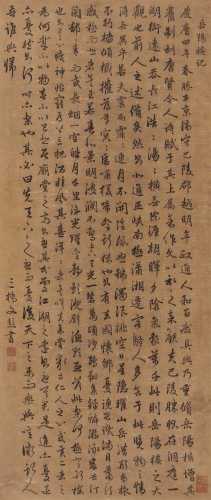 岳陽樓記
慶曆四年春滕子京謫守巴陵郡越明年政通人和百廢具興乃重修岳陽樓增其
舊制刻唐賢今人詩賦于其上屬予作文以記之予觀夫巴陵勝狀在洞庭一湖
銜遠山吞長江浩浩湯湯橫無際涯朝暉夕陰氣象萬千此則岳陽樓之大
觀也前人之述備矣然則北通巫峽南極瀟湘遷客騷人多會于此覽物之情
得無異乎若夫霪雨霏霏連月不開陰風怒號濁浪排空日星隱曜山岳潛形商旅
不行檣傾楫摧薄暮冥冥虎嘯猿啼登斯樓也則有去國懷鄉憂讒畏譏滿目蕭然
感極而悲者矣至若春和景明波瀾不驚上下天光一碧萬頃沙鷗翔集錦鱗游泳岸芷汀
蘭郁郁青青而或長煙一空皓月千里浮光躍金靜影沉璧漁歌互答此樂何極登斯樓
也則有心曠神怡寵辱皆忘把酒臨風其喜洋洋者矣嗟夫予嘗求古仁人之心或異二者之
為何哉不以物喜不以己悲居廟堂之高則憂其民處江湖之遠則憂其君是進亦憂退
亦憂然則何時而樂耶其必曰先天下之憂而憂後天下之樂而樂歟噫微斯人
吾誰與歸
三橋文彭書